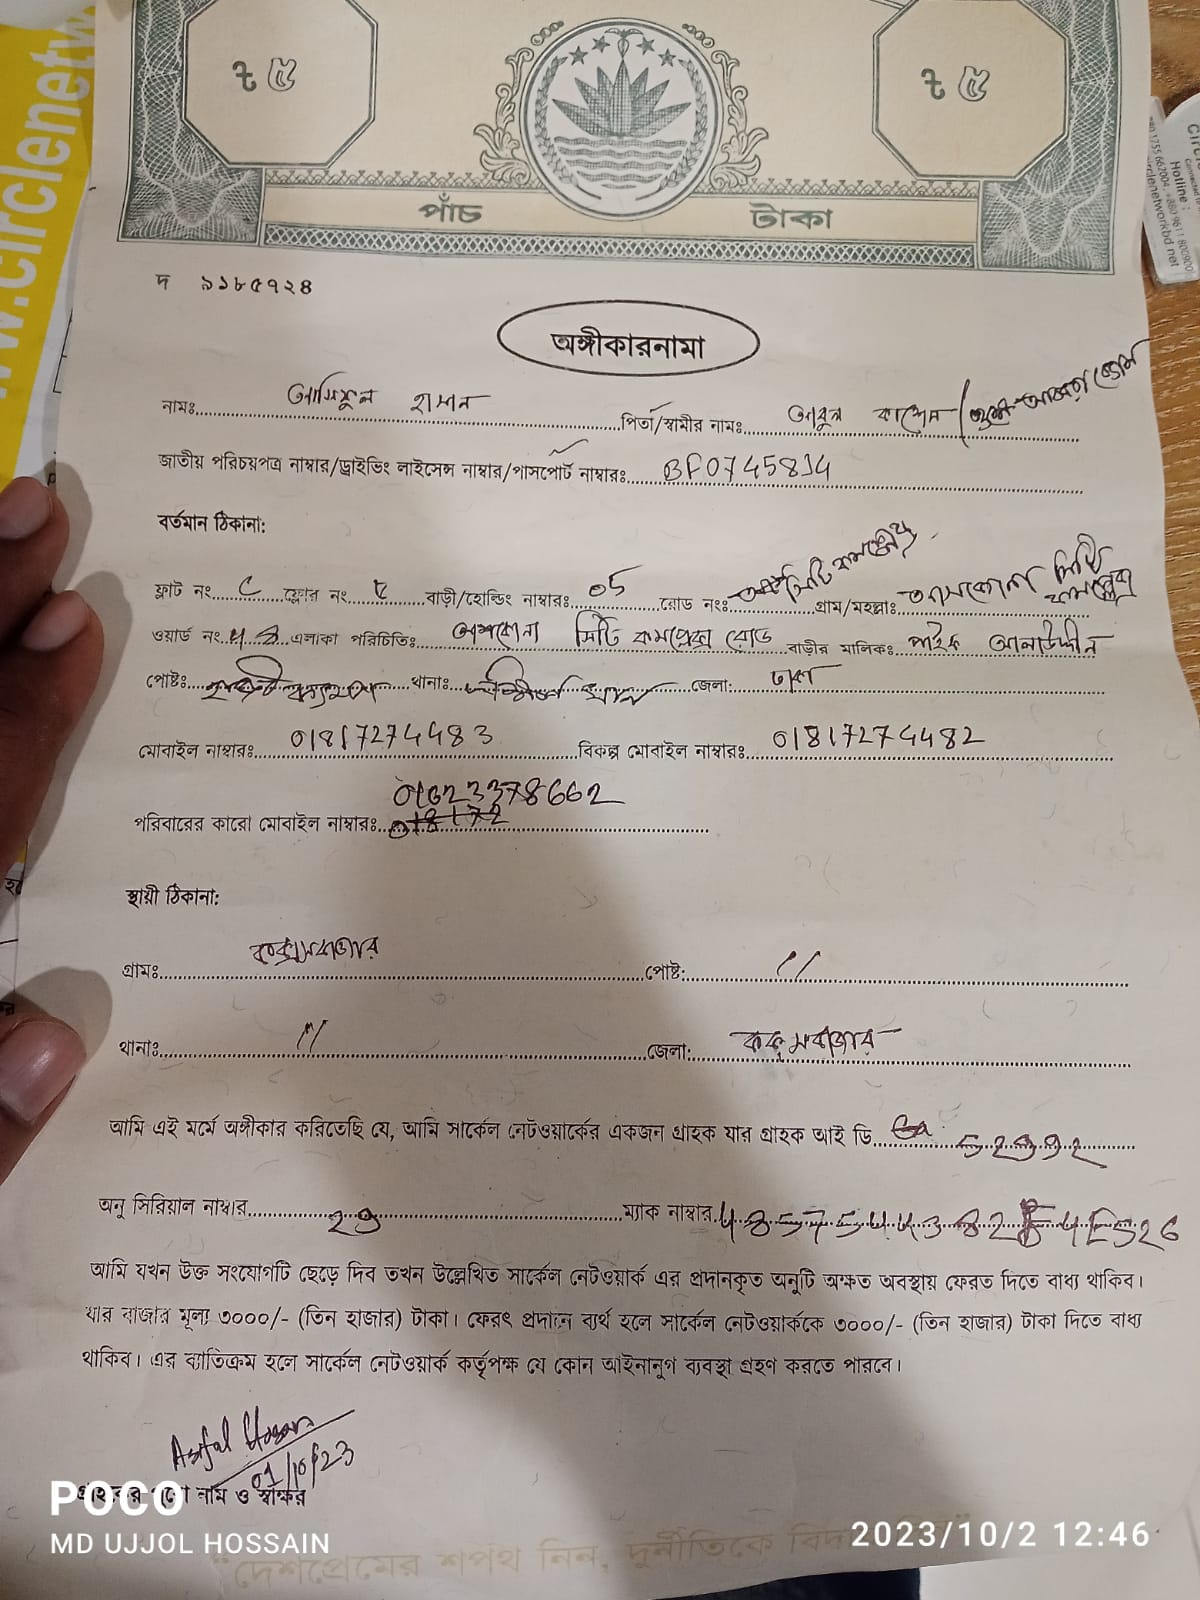 www.circlenetw
৳ ৫
৳ ৫
পাঁচ টাকা
Hotline :
দ ৯১৮৫৭২৪
অঙ্গীকারনামা
নামঃ আসিফুল হাসান পিতা/স্বামীর নামঃ আবুল কাশেম
জাতীয় পরিচয়পত্র নাম্বার/ড্রাইভিং লাইসেন্স নাম্বার/পাসপোর্ট নাম্বারঃ BF0745814
বর্তমান ঠিকানা:
ফ্লাট নং C ফ্লোর নং ৫ বাড়ী/হোল্ডিং নাম্বারঃ 05 রোড নংঃ সিটি কমপ্লেক্স গ্রাম/মহল্লাঃ আশকোনা সিটি কমপ্লেক্স
ওয়ার্ড নং এলাকা পরিচিতিঃ আশকোনা সিটি কমপ্লেক্স রোড বাড়ীর মালিকঃ পাইক আলাউদ্দীন
পোষ্টঃ থানাঃ জেলা: ঢাকা
মোবাইল নাম্বারঃ 01817274483 বিকল্প মোবাইল নাম্বারঃ 01817274482
01623378662
পরিবারের কারো মোবাইল নাম্বারঃ 018172
স্থায়ী ঠিকানা:
গ্রামঃ কক্সবাজার পোষ্ট: //
থানাঃ // জেলা: কক্সবাজার
আমি এই মর্মে অঙ্গীকার করিতেছি যে, আমি সার্কেল নেটওয়ার্কের একজন গ্রাহক যার গ্রাহক আই ডি 52992
অনু সিরিয়াল নাম্বার 29 ম্যাক নাম্বার
আমি যখন উক্ত সংযোগটি ছেড়ে দিব তখন উল্লেখিত সার্কেল নেটওয়ার্ক এর প্রদানকৃত অনুটি অক্ষত অবস্থায় ফেরত দিতে বাধ্য থাকিব।
যার বাজার মূল্য ৩০০০/- (তিন হাজার) টাকা। ফেরৎ প্রদানে ব্যর্থ হলে সার্কেল নেটওয়ার্ককে ৩০০০/- (তিন হাজার) টাকা দিতে বাধ্য
থাকিব। এর ব্যতিক্রম হলে সার্কেল নেটওয়ার্ক কর্তৃপক্ষ যে কোন আইনানুগ ব্যবস্থা গ্রহণ করতে পারবে।
Asiful Hasan
01/10/23
নাম ও স্বাক্ষর
POCO
MD UJJOL HOSSAIN
2023/10/2 12:46
"দেশপ্রেমের শপথ নিন, দুর্নীতিকে বিদায়